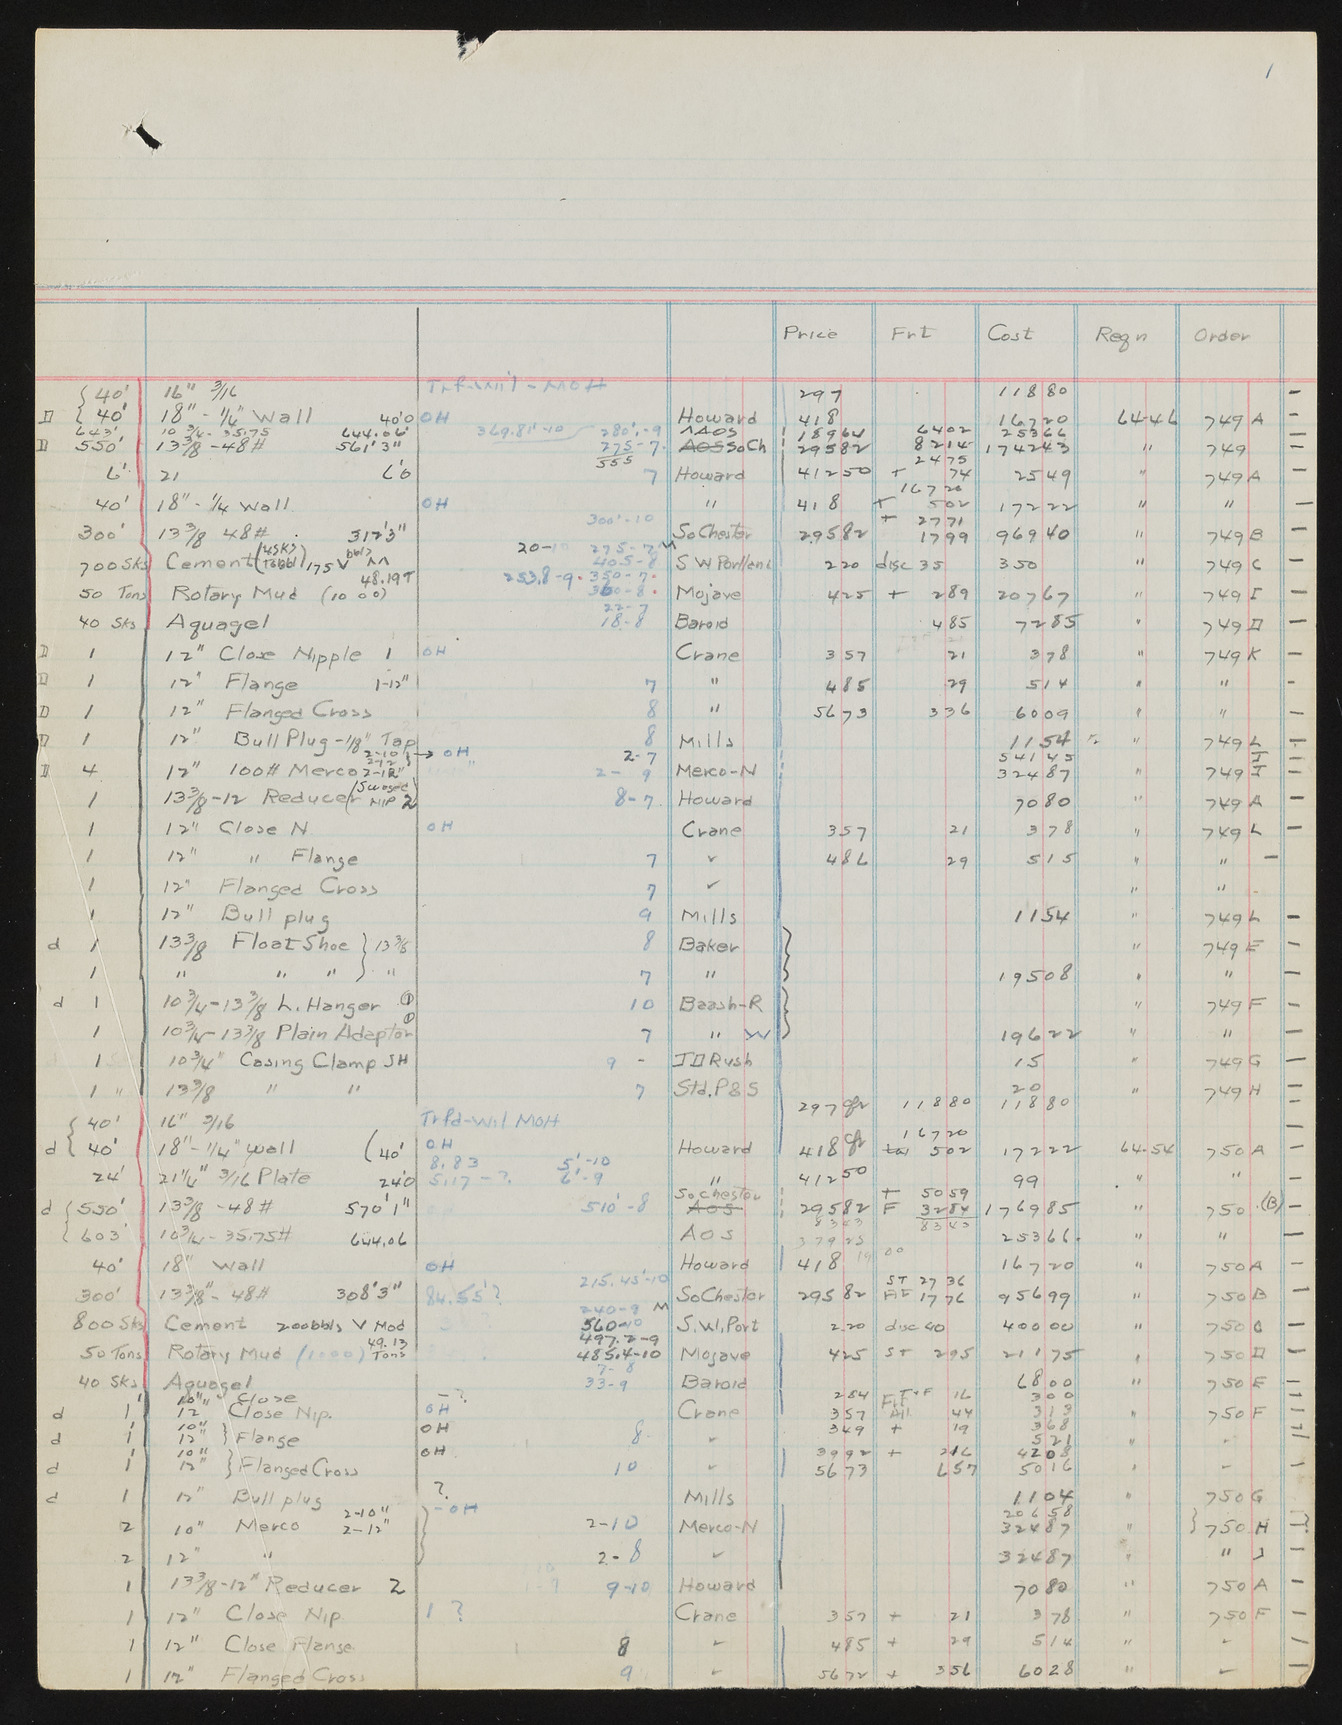 1
Price Frt Cost Reqn Order
40' 16" 3/16 Trf-Wil - MOH 297 11880 -
D 40' 18" - 1/4" Wall 40'0 OH Howard 418 16720 6446 749 A -
643' 10 3/4 - 35.75 644.06' 369.81'-10 280'-9 AOS 18964 6402 25366 -
D 550' 13 3/8 - 48# 561'3" 275-7 AOS SoCh 29582 8214 174243 " 749 -
555 2475
6' 21 6'0 7 Howard 41250 + 74 2549 " 749 A -
16720
40' 18" - 1/4 Wall OH " 418 + 502 17222 " " -
300'-10 + 2771
300' 13 3/8 48# 317'3" SoChester 29582 1799 96940 " 749 B -
20-10 275-7 M
700 Sks Cement (4SKS 1bbl) 175 V bbls 405-8 S W Portland 220 disc 35 350 " 749 C -
48.19T 253.8-9 350-7
50 Tons Rotary Mud (1000) 360-8 Mojave 425 + 289 20767 " 749 I -
22-7
40 Sks Aquagel 18-8 Baroid 485 7285 " 749 D -
D 1 12" Close Nipple 1 OH Crane 357 21 378 " 749 K -
D 1 12" Flange 1-12" 7 " 485 29 514 " " -
D 1 12" Flanged Cross 8 " 5673 336 6009 " " -
D 1 12" Bull Plug - 1/8" Tap 8 Mills 1154 " 749 L -
2-10 2-12 → OH 2-7 54145 J -
D 4 12" 100# Merco 2-12" 2- 9 Merco-N 32487 " 749 J -
1 13 3/8-12 Reducer (Swaged NIP 2 8-7 Howard 7080 " 749 A -
1 12" Close N OH Crane 357 21 378 " 749 L -
1 12" " Flange 7 ✓ 486 29 515 " " -
1 12" Flanged Cross 7 ✓ " " -
1 12" Bull plug 9 Mills 1154 " 749 L -
d 1 13 3/8 Float Shoe } 13 3/8 8 Baker " 749 E -
1 " " " } " 7 " 19508 " " -
d 1 10 3/4-13 3/8 L. Hanger ① 10 Baash-R " 749 F -
1 10 3/4-13 3/8 Plain Adaptor ① 7 " W 19622 " " -
1 10 3/4" Casing Clamp SH 9 - JD Rush 15 " 749 G -
1 " 13 3/8 " " 7 Std. P & S 20 " 749 H -
40' 16" 3/16 Trfd-Wil MOH 297 cfr 11880 11880 -
16720
d 40' 18" - 1/4" wall (40' OH Howard 418 cfr tax 502 17222 64.54 750 A -
8.83 5'-10
24' 21 1/4" 3/16 Plate 24'0 5.17 - ? 6'-9 " 41250 99 " " -
SoChester + 5059
d 550' 13 3/8 - 48# 570'1" 510'-8 AOS 29582 F 3284 176985 " 750 (B) -
8343 8343
603' 10 3/4 - 35.75# 644.06 AOS 37925 25366. " " -
40' 18" Wall OH Howard 418 1900 16720 " 750 A -
215.45'-10 ST 2736
300' 13 3/8" - 48# 308'3" 84.55'? SoChester 29582 1776 95699 " 750 B -
240-9 M
800 Sks Cement 200 bbls V Mod 560-10 S.W. Port 220 disc 40 40000 " 750 C -
49.13 497.2-9
50 Tons Rotary Mud (1000) Tons 485.4-10 Mojave 425 ST 295 21175 " 750 D -
7-8
40 Sks Aquagel 33-9 Baroid 6800 " 750 E -
10" Close - ? 284 16 300
d 1 12 Close Nip. OH Crane 357 All 44 313 " 750 F -
10" OH 349 + 19 368
d 1 12" } Flange 8 ✓ 521 " ✓ -
10" OH 3992 + 216 4208
d 1 12" } Flanged Cross 10 ✓ 5673 657 5016 " ✓ -
d 1 12" Bull plug ? Mills 1104 " 750 G -
2-10" - OH 20658
2 10" Merco 2-12" 2-10 Merco-N 32487 " 750 H -
2 12" " 2-8 ✓ 32487 " " J -
1 13 3/8-12" Reducer 2 1-9 9-10 Howard 7080 " 750 A -
1 12" Close Nip. 1 ? Crane 357 + 21 378 " 750 F -
1 12" Close Flange 8 ✓ 485 + 29 514 " ✓ -
1 12" Flanged Cross 9 ✓ 5672 + 356 6028 " ✓ -